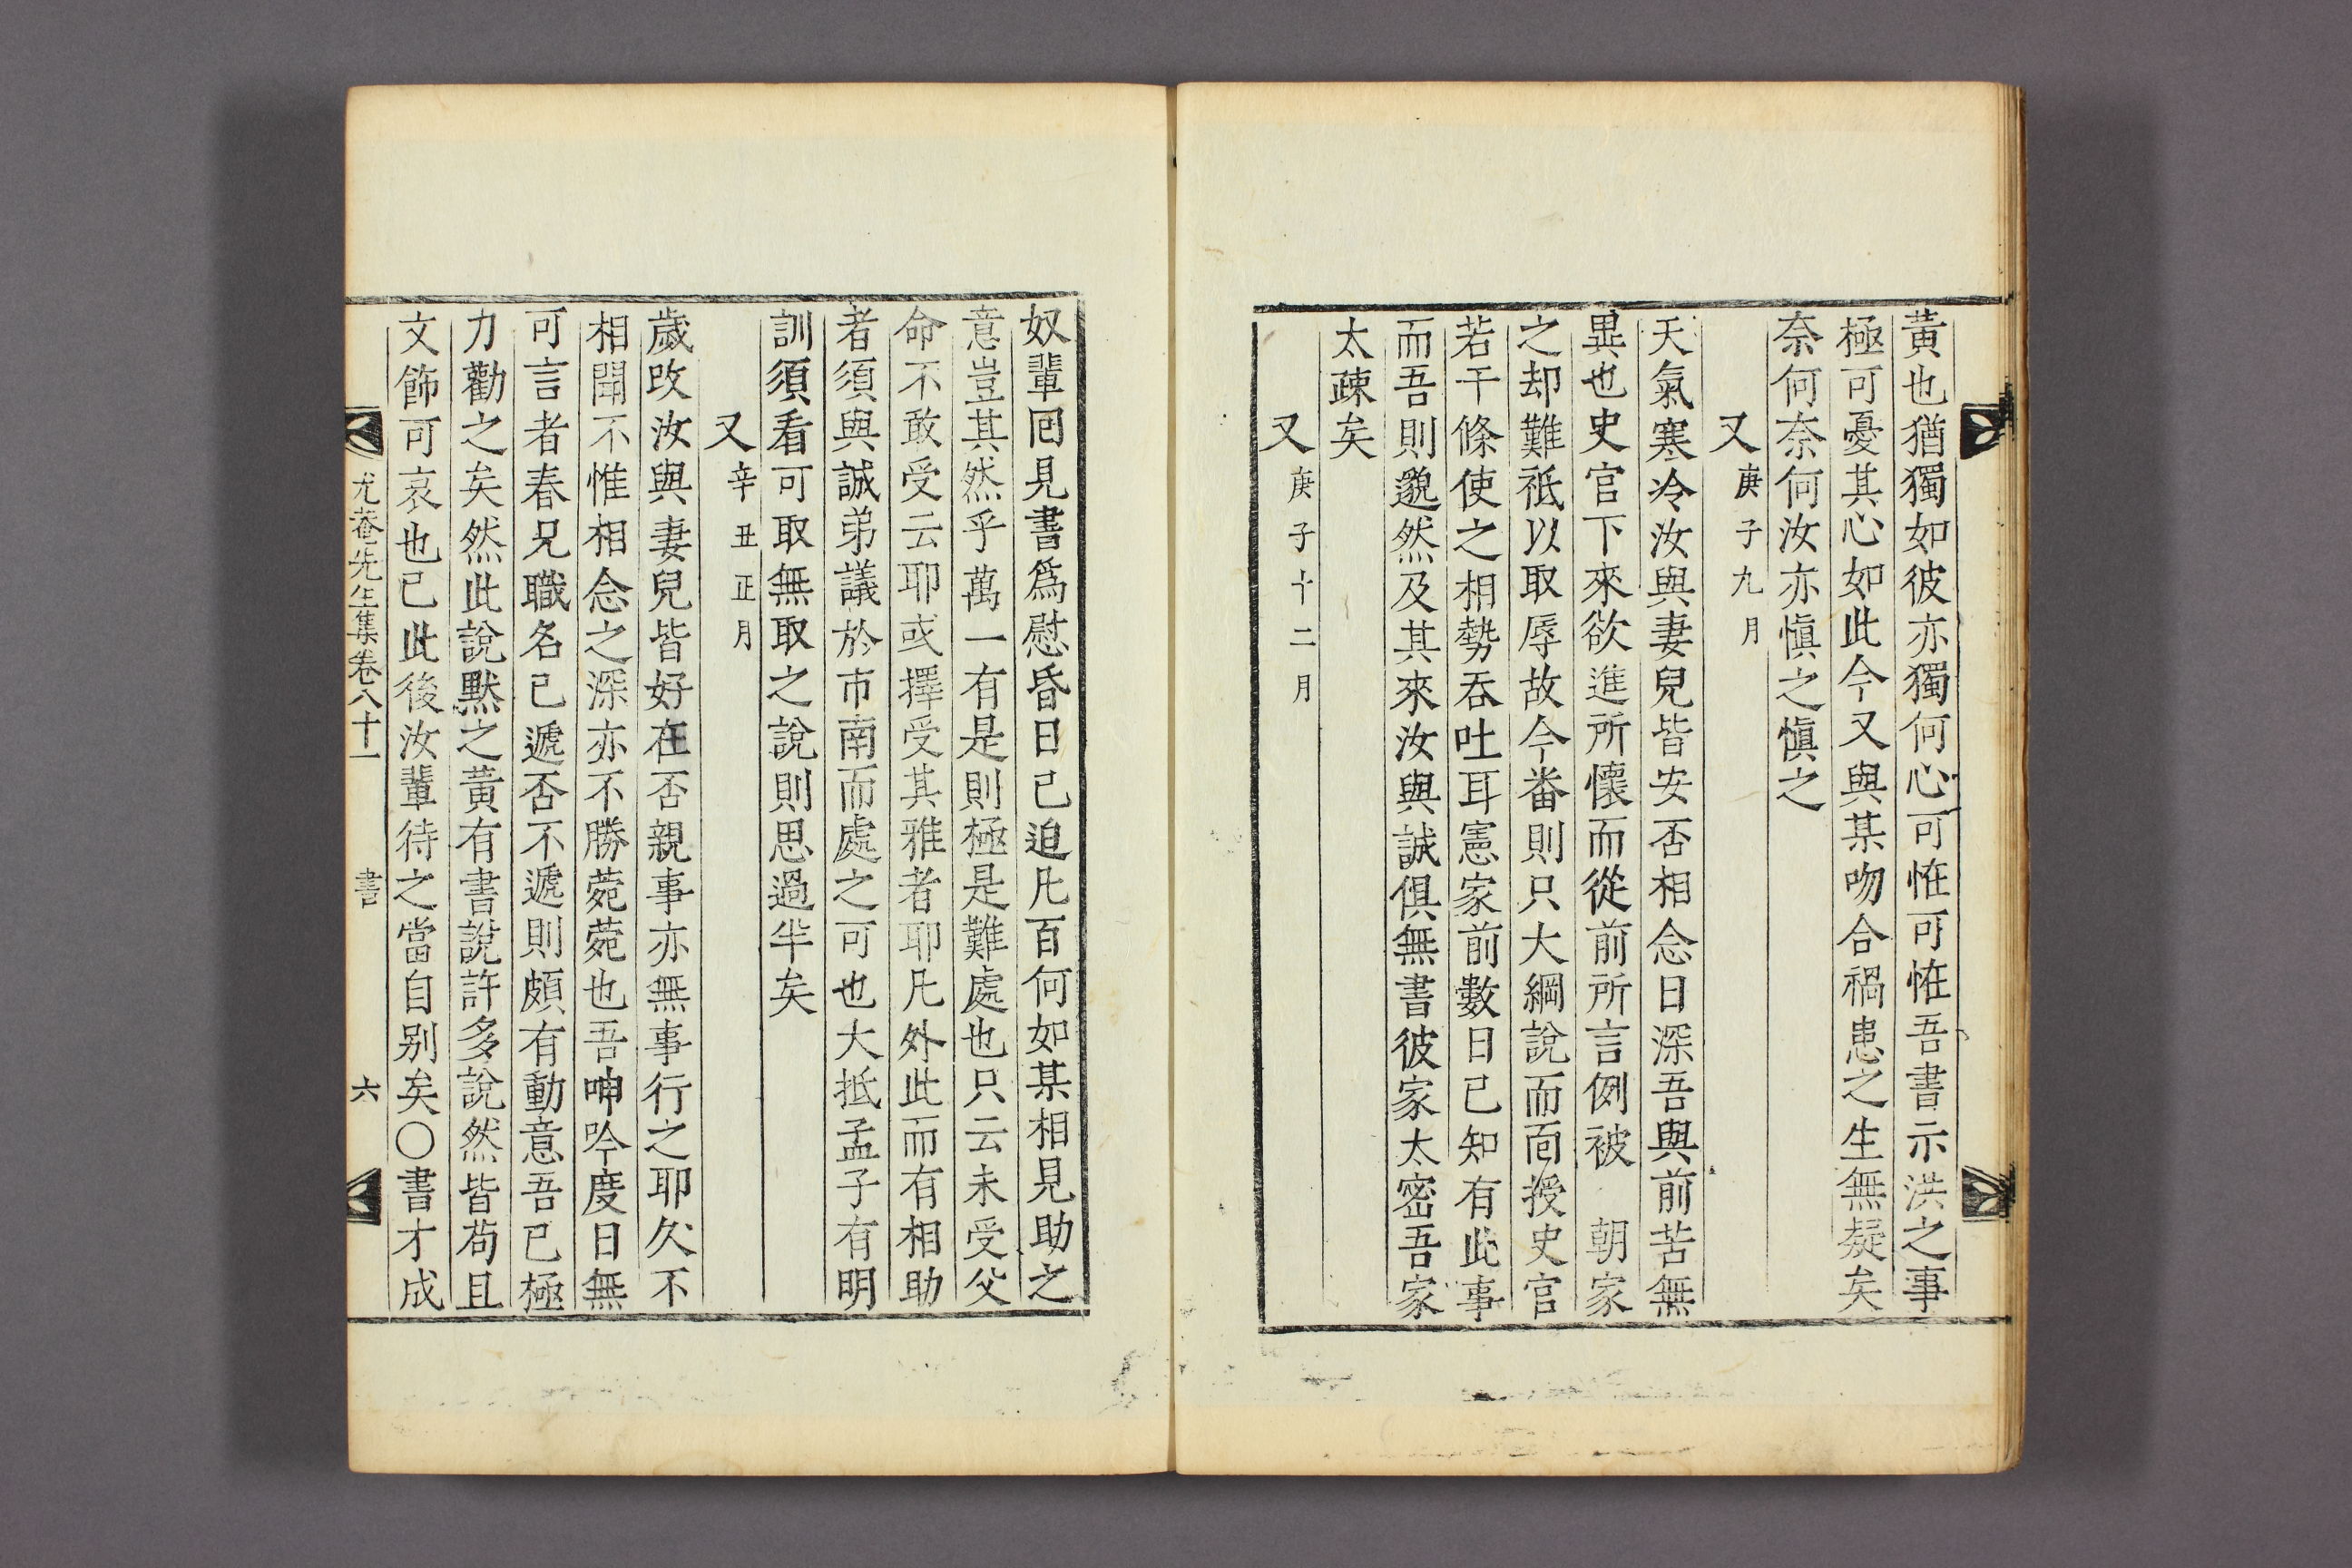 黃也猶獨如彼亦獨何心可恠可恠吾書示洪之事
極可憂其心如此今又與某吻合禍患之生無疑矣
奈何奈何汝亦愼之愼之
又庚子九月
天氣寒冷汝與妻兒皆安否相念日深吾與前苦無
異也史官下來欲進所懷而從前所言例被　朝家
之却難祗以取辱故今番則只大綱說而面授史官
若干條使之相勢呑吐耳憲家前數日已知有此事
而吾則邈然及其來汝與誠俱無書彼家太密吾家
太疎矣
又庚子十二月
奴輩回見書爲慰昏日已迫凡百何如某相見助之
意豈其然乎萬一有是則極是難處也只云未受父
命不敢受云耶或擇受其雅者耶凡外此而有相助
者須與誠弟議於市南而處之可也大抵孟子有明
訓須看可取無取之說則思過半矣
又辛丑正月
歲改汝與妻兒皆好在否親事亦無事行之耶久不
相聞不惟相念之深亦不勝菀菀也吾呻吟度日無
可言者春兄職名已遞否不遞則頗有動意吾已極
力勸之矣然此說默之黃有書說許多說然皆苟且
文飾可哀也已此後汝輩待之當自别矣○書才成
尤菴先生集卷八十一　書　六